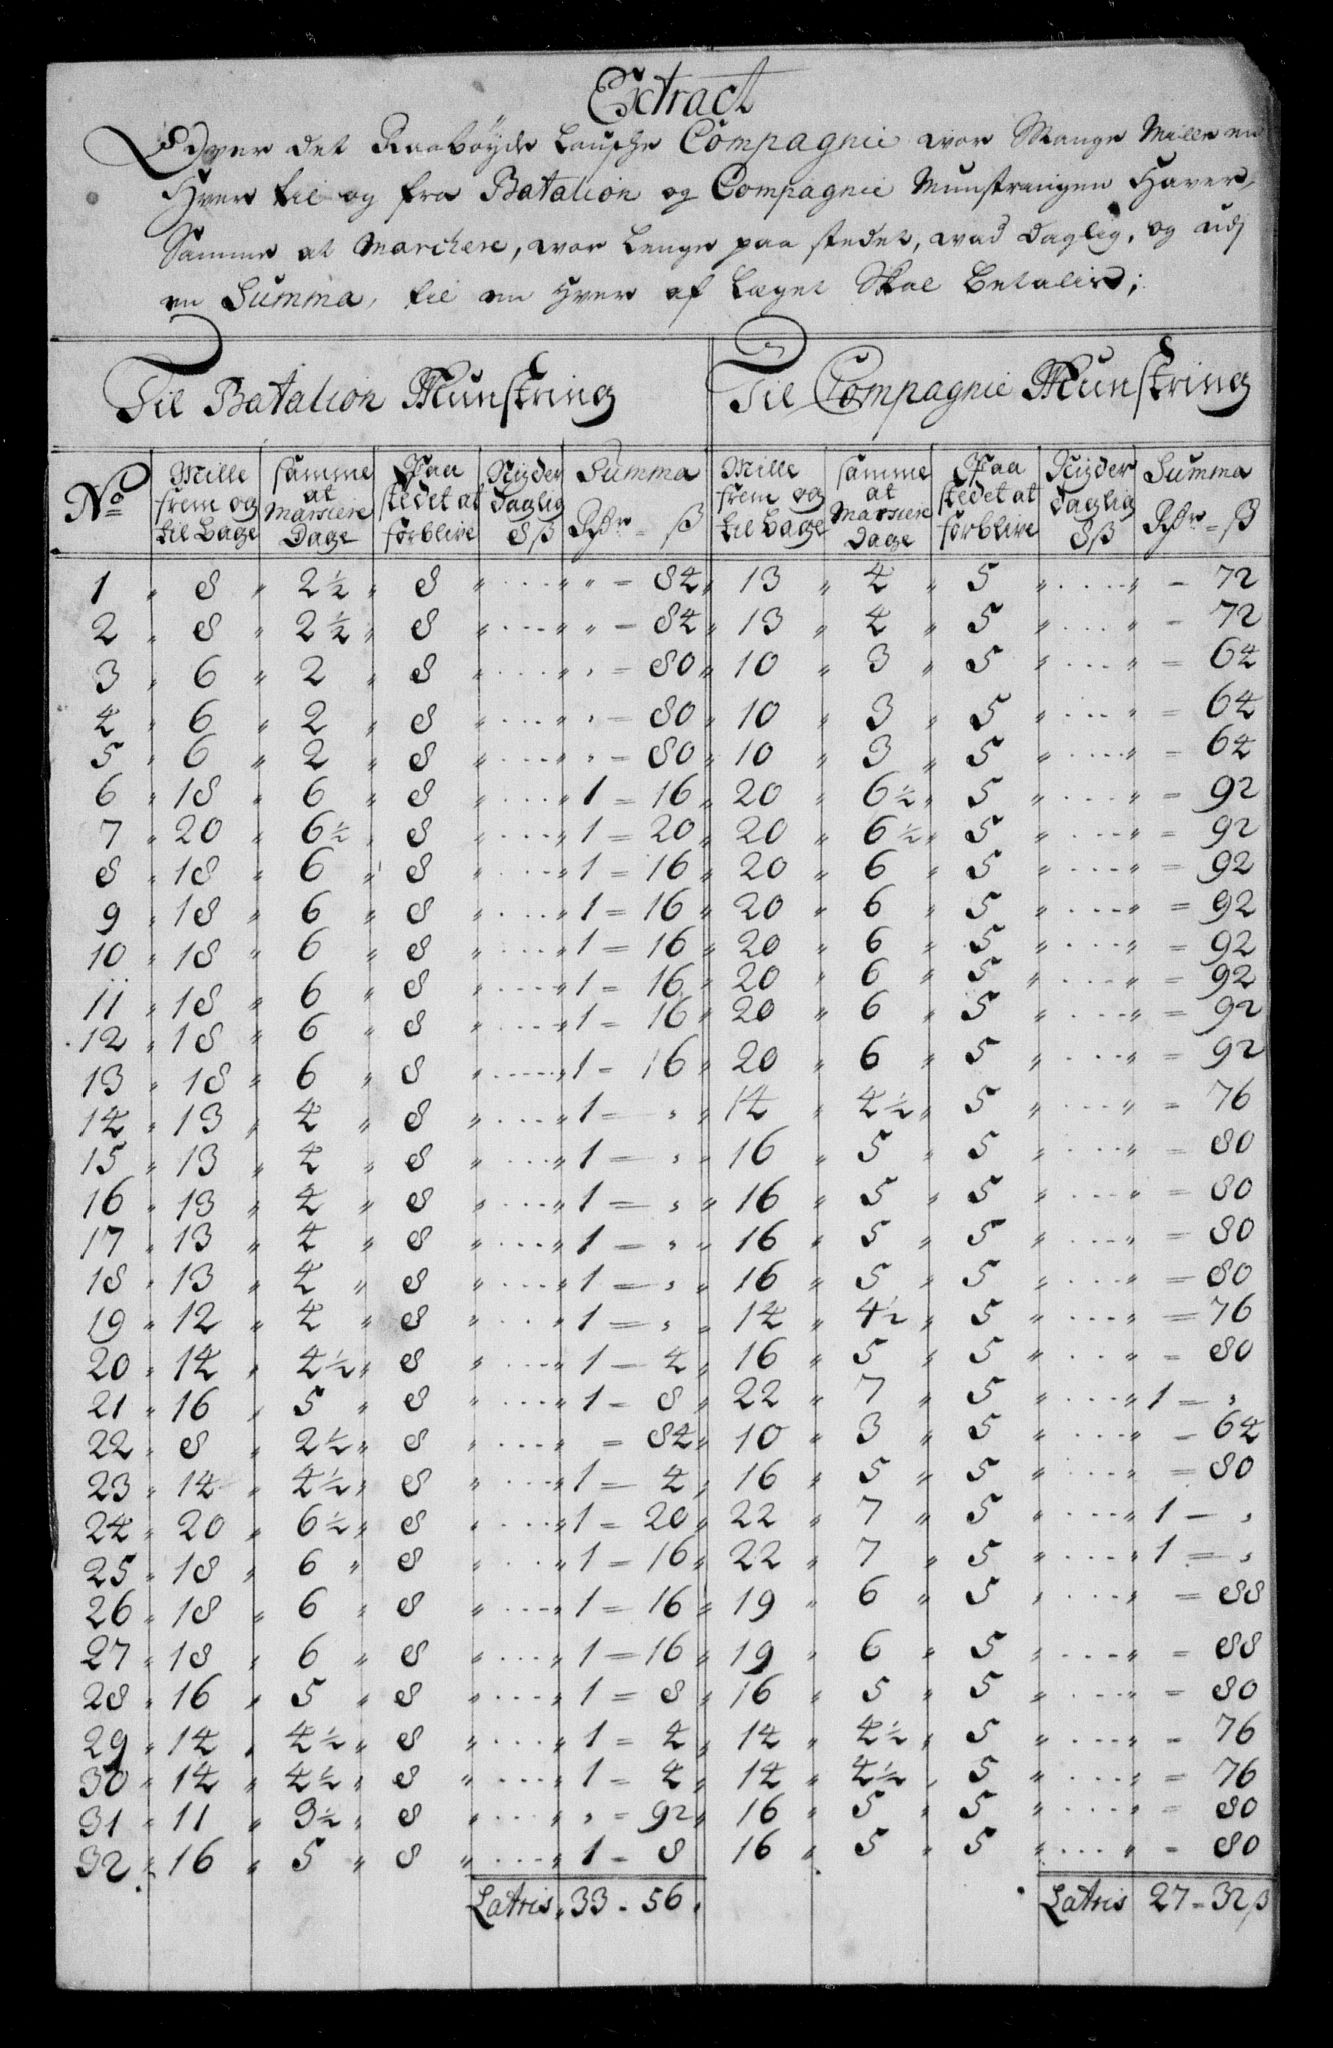 Extract
Over det Raabøyde Lauske Compagnie wor Mange Mille en
Hver til og fra Batalion og Compagnie Munstringen Haver
Samme at Marchere, wor Lenge paa stedet, wad Daglig, og udj
en Summa, til en Hver af Læget Skal Betalis;
Til Batalion Munstring Til Compagnie Munstring
No Mille frem og til bage samme at Marsiere Dage Paa stedet at forblive Nyder Daglig 8 ß Summa Rdr - ß Mille frem og til bage samme at Marsiere Dage Paa stedet at forblive Nyder Daglig 8 ß Summa Rdr - ß
1 " 8 " 2½ " 8 " .... " " - 84 " 13 " 4 " 5 " .... " - 72
2 " 8 " 2½ " 8 " .... " " - 84 " 13 " 4 " 5 " .... " - 72
3 " 6 " 2 " 8 " .... " " - 80 " 10 " 3 " 5 " .... " - 64
4 " 6 " 2 " 8 " .... " " - 80 " 10 " 3 " 5 " .... " - 64
5 " 6 " 2 " 8 " .... " " - 80 " 10 " 3 " 5 " .... " - 64
6 " 18 " 6 " 8 " .... " 1 - 16 " 20 " 6½ " 5 " .... " - 92
7 " 20 " 6½ " 8 " .... " 1 - 20 " 20 " 6½ " 5 " .... " - 92
8 " 18 " 6 " 8 " .... " 1 - 16 " 20 " 6 " 5 " .... " - 92
9 " 18 " 6 " 8 " .... " 1 - 16 " 20 " 6 " 5 " .... " - 92
10 " 18 " 6 " 8 " .... " 1 - 16 " 20 " 6 " 5 " .... " - 92
11 " 18 " 6 " 8 " .... " 1 - 16 " 20 " 6 " 5 " .... " - 92
12 " 18 " 6 " 8 " .... " 1 - 16 " 20 " 6 " 5 " .... " - 92
13 " 18 " 6 " 8 " .... " 1 - 16 " 20 " 6 " 5 " .... " - 92
14 " 13 " 4 " 8 " .... " 1 - " " 14 " 4½ " 5 " .... " - 76
15 " 13 " 4 " 8 " .... " 1 - " " 16 " 5 " 5 " .... " - 80
16 " 13 " 4 " 8 " .... " 1 - " " 16 " 5 " 5 " .... " - 80
17 " 13 " 4 " 8 " .... " 1 - " " 16 " 5 " 5 " .... " - 80
18 " 13 " 4 " 8 " .... " 1 - " " 16 " 5 " 5 " .... " - 80
19 " 12 " 4 " 8 " .... " 1 - " " 14 " 4½ " 5 " .... " - 76
20 " 14 " 4½ " 8 " .... " 1 - 4 " 16 " 5 " 5 " .... " - 80
21 " 16 " 5 " 8 " .... " 1 - 8 " 22 " 7 " 5 " .... " 1 - "
22 " 8 " 2½ " 8 " .... " - 84 " 10 " 3 " 5 " .... " - 64
23 " 14 " 4½ " 8 " .... " 1 - 4 " 16 " 5 " 5 " .... " - 80
24 " 20 " 6½ " 8 " .... " 1 - 20 " 22 " 7 " 5 " .... " 1 - "
25 " 18 " 6 " 8 " .... " 1 - 16 " 22 " 7 " 5 " .... " 1 - "
26 " 18 " 6 " 8 " .... " 1 - 16 " 19 " 6 " 5 " .... " - 88
27 " 18 " 6 " 8 " .... " 1 - 16 " 19 " 6 " 5 " .... " - 88
28 " 16 " 5 " 8 " .... " 1 - 8 " 16 " 5 " 5 " .... " - 80
29 " 14 " 4½ " 8 " .... " 1 - 4 " 14 " 4½ " 5 " .... " - 76
30 " 14 " 4½ " 8 " .... " 1 - 4 " 14 " 4½ " 5 " .... " - 76
31 " 11 " 3½ " 8 " .... " " - 92 " 16 " 5 " 5 " .... " - 80
32 " 16 " 5 " 8 " .... " 1 - 8 16 " 5 " 5 " .... " - 80
Latris " 33 - 56 " Latris 27 - 32 ß